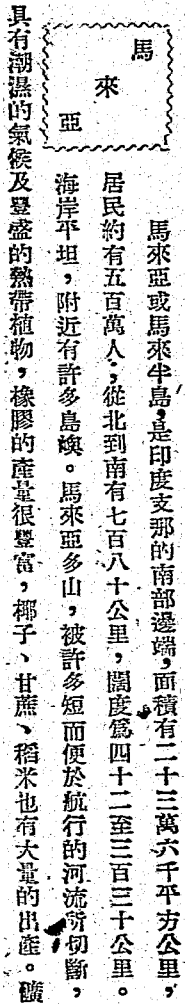 馬來亞
馬來亞或馬來半島，是印度支那的南部邊端，面積有二十三萬六千平方公里，
居民約有五百萬人；從北到南有七百八十公里，闊度爲四十二至三百三十公里。
海岸平坦，附近有許多島嶼。馬來亞多山，被許多短而便於航行的河流所切斷，
具有潮濕的氣候及豐盛的熱帶植物，橡膠的產量很豐富，椰子、甘蔗、稻米也有大量的出產。礦